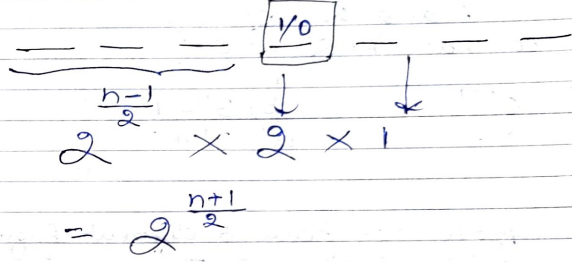 — — — 1/0 — — —
2^{\frac{n-1}{2}} × 2 × 1
= 2^{\frac{n+1}{2}}